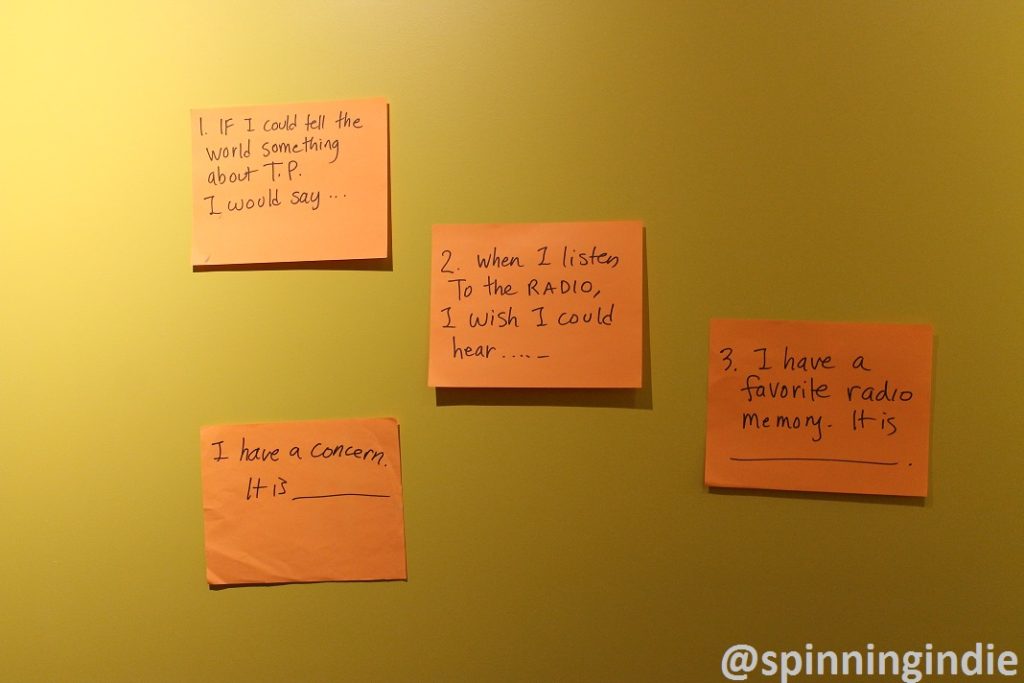 1. IF I could tell the
world something
about T.P.
I would say ...
2. when I listen
To the RADIO,
I wish I could
hear .... _
3. I have a
favorite radio
memory. It is
____________.
I have a concern.
It is ________
@spinningindie